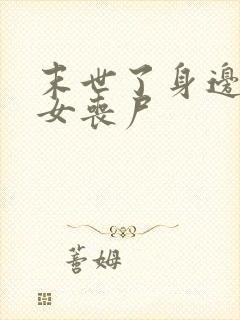 末世了身邊
女喪尸
蓍姆